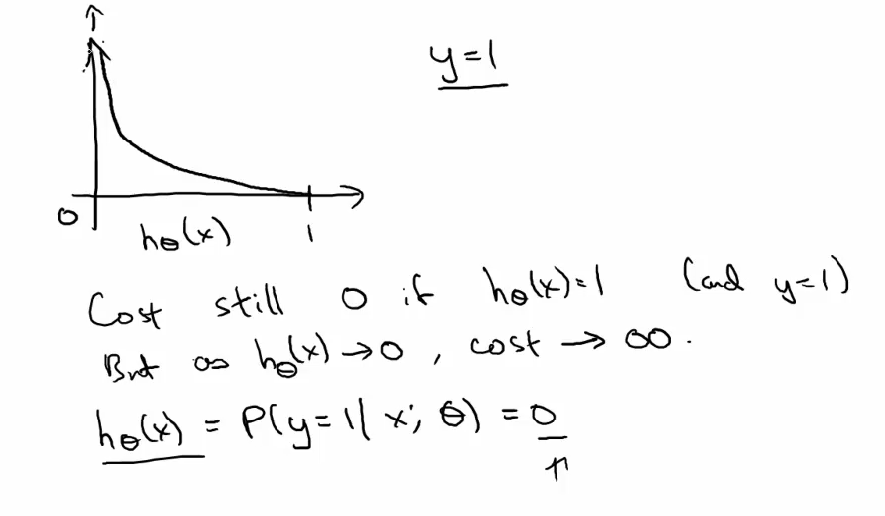 y=1
0
hθ(x)
1
Cost still 0 if hθ(x)=1 (and y=1)
But as hθ(x) → 0, cost → ∞.
hθ(x) = P(y=1| x; θ) = 0